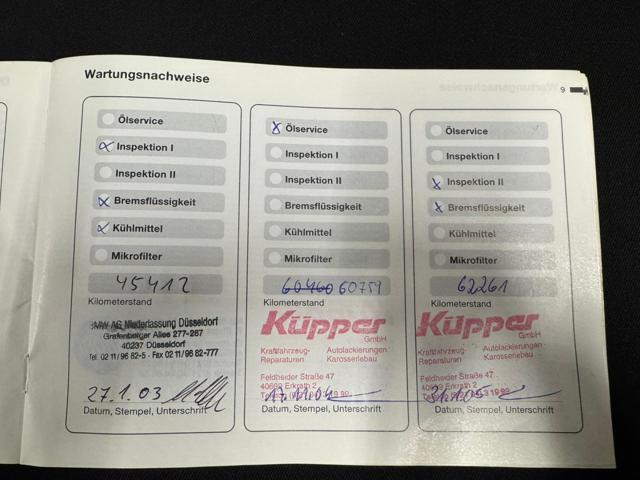 Wartungsnachweise
9
Ölservice
Inspektion I
Inspektion II
Bremsflüssigkeit
Kühlmittel
Mikrofilter
45412
Kilometerstand
BMW AG Niederlassung Düsseldorf
Grafenberger Allee 277-287
40237 Düsseldorf
Tel. 02 11/96 82-5 · Fax 02 11/96 82-777
27.1.03
Datum, Stempel, Unterschrift
Ölservice
Inspektion I
Inspektion II
Bremsflüssigkeit
Kühlmittel
Mikrofilter
60460 60759
Kilometerstand
Küpper
GmbH
Kraftfahrzeug- Autolackierungen
Reparaturen Karosseriebau
Feldheider Straße 47
40699 Erkrath 2
17.11.04
Datum, Stempel, Unterschrift
Ölservice
Inspektion I
Inspektion II
Bremsflüssigkeit
Kühlmittel
Mikrofilter
62261
Kilometerstand
Küpper
GmbH
Kraftfahrzeug- Autolackierungen
Reparaturen Karosseriebau
Feldheider Straße 47
40699 Erkrath 2
Datum, Stempel, Unterschrift